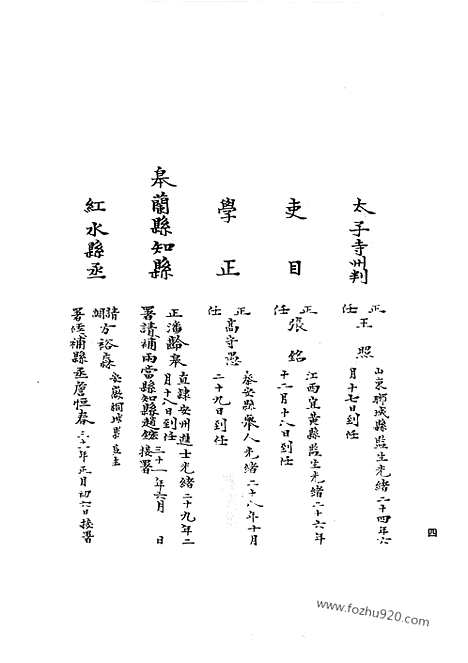 太子寺州判
正任王照 山東聊城縣監生光緒二十四年六
月十七日到任
吏目
正任張銘 江西宜黃縣監生光緒二十六年
十二月十八日到任
學正
正任高守愚 秦安縣廩人光緒二十八年十月
二十九日到任
皋蘭縣知縣
正潘齡皋 直隸安州進士光緒二十九年二
月十八日到任
署請補兩當縣知縣趙 三十一年六月 日
接署
紅水縣丞
請方裕 安徽桐城縣監生
署任補縣丞詹恒春 三十一年正月初六日接署
四
www.fozhu920.com